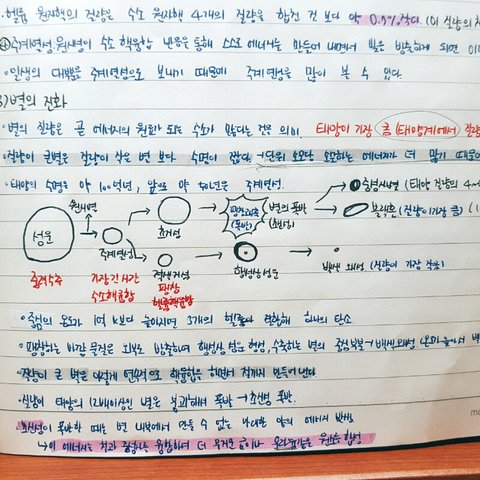 헬륨 원자핵의 질량은 수소 원자핵 4개의 질량을 합친 것 보다 약 0.7% 작다. (이 질량의 차
④주계열성: 원시별이 수소 핵융합 반응을 통해 스스로 에너지를 만들어 내면서 빛을 방출하게 되면 이
·일생의 대부분을 주계열성으로 보내기 때문에 주계열성을 많이 볼 수 있다.
3)별의 진화
·별의 질량은 곧 에너지의 원료가 되는 수소가 많다는 것을 의미. 태양이 가장 큼 (태양계에서) 질량
·질량이 큰별은 질량이 작은 별 보다 수명이 짧다→단위 소모당 소모하는 에너지가 더 많기 때문에
·태양의 수명은 약 100억년, 앞으로 약 50억년은 주계열성.
성운
원시별
주계열성
초거성
적색거성
별의 폭발
(초신성)
중성자별 (태양 질량의 4~
블랙홀 (질량이 가장 큼)
행성상성운
백색 왜성 (질량이 가장 작음)
출격수주
가장 긴 시간
수소핵융합
팽창
헬륨핵융합
·중심의 온도가 1억 K보다 높아지면 3개의 헬륨이 결합해 하나의 탄소.
·팽창하는 바깥 물질은 외부로 방출하며 행성상 성운 형성, 수축하는 별의 중심부→백색왜성
·질량이 큰 별은 연속으로 핵융합을 하면서 철까지 만들어 낸다
·질량이 태양의 배이상인 별은 붕괴해서 폭발→초신성 폭발.
·초신성이 폭발할 때는 별 내부에서 만들 수 없는 막대한 양의 에너지 발생
↳이 에너지는 철과 융합하여 더 무거운 금이나 우라늄같은 원소 합성